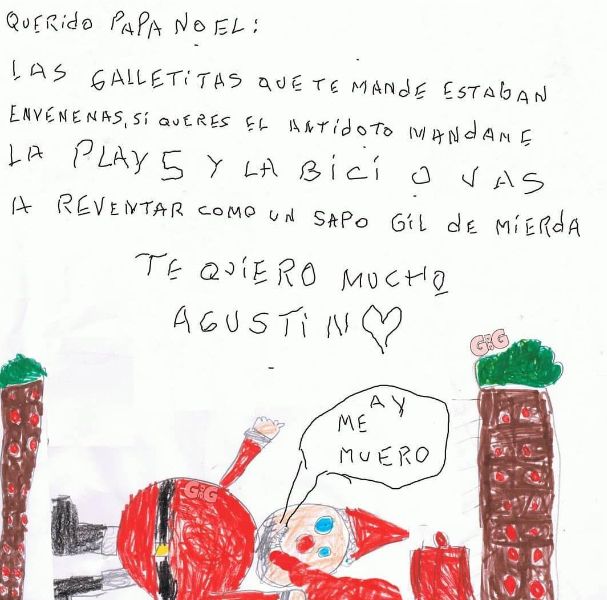 QUERIDO PAPA NOEL:
LAS GALLETITAS QUE TE MANDE ESTABAN
ENVENENAS, SI QUERES EL ANTIDOTO MANDAME
LA PLAY 5 Y LA BICI O VAS
A REVENTAR COMO UN SAPO GIL DE MIERDA
TE QUIERO MUCHO
AGUSTIN
G&G
AY
ME
MUERO
G&G